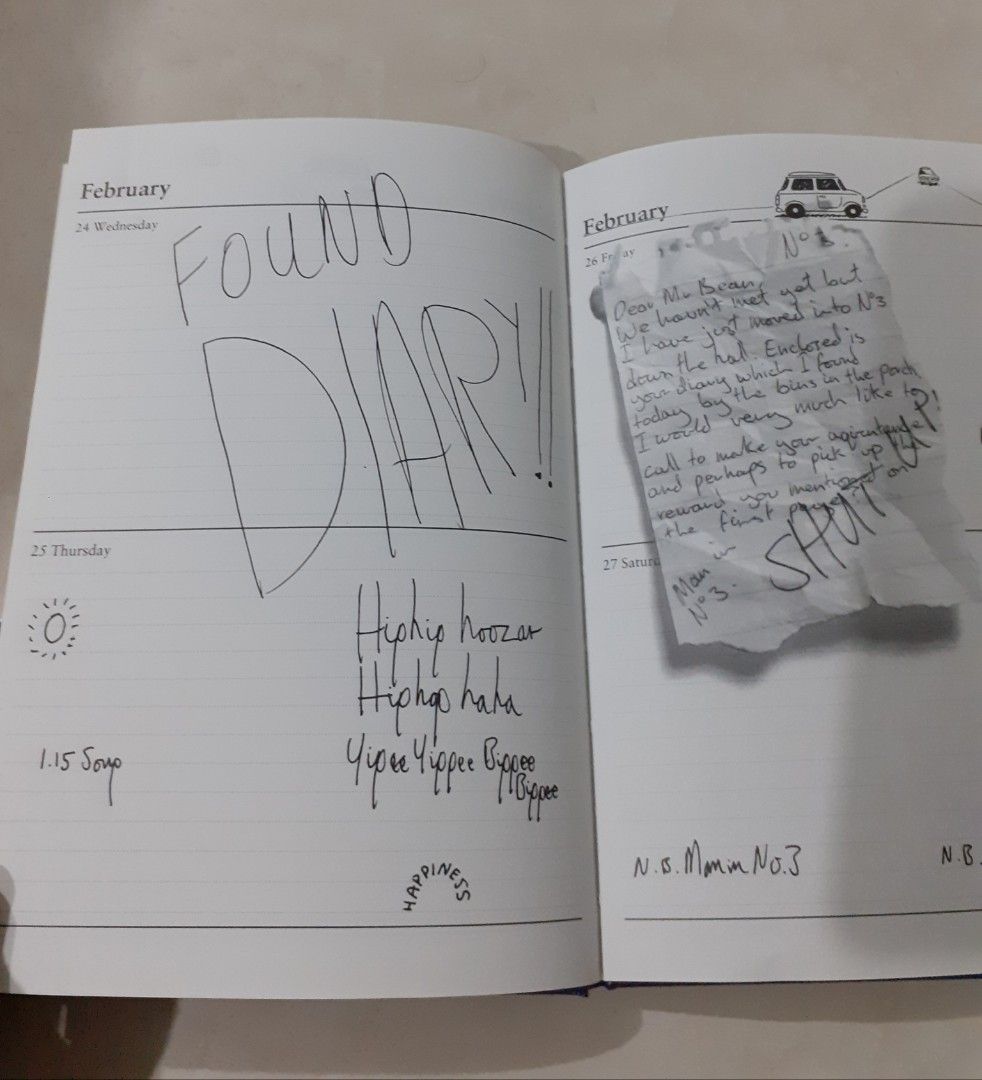 February
24 Wednesday
FOUND
DIARY!!
25 Thursday
Hiphip hoozar
Hiphop haha
1.15 Soup
Yipee Yippee Bippee
Bippee
HAPPINESS
February
26 Friday
Nº 3.
Dear Mr Bean,
We havn't met yet but
I have just moved into Nº3
down the hall. Enclosed is
your diary which I found
today by the bins in the porch
I would very much like to
call to make your
and perhaps to pick up the
reward you mentioned on
the first page.
Man in
Nº3.
SHUT UP!
27 Satur
N.B. Man in No.3
N.B.